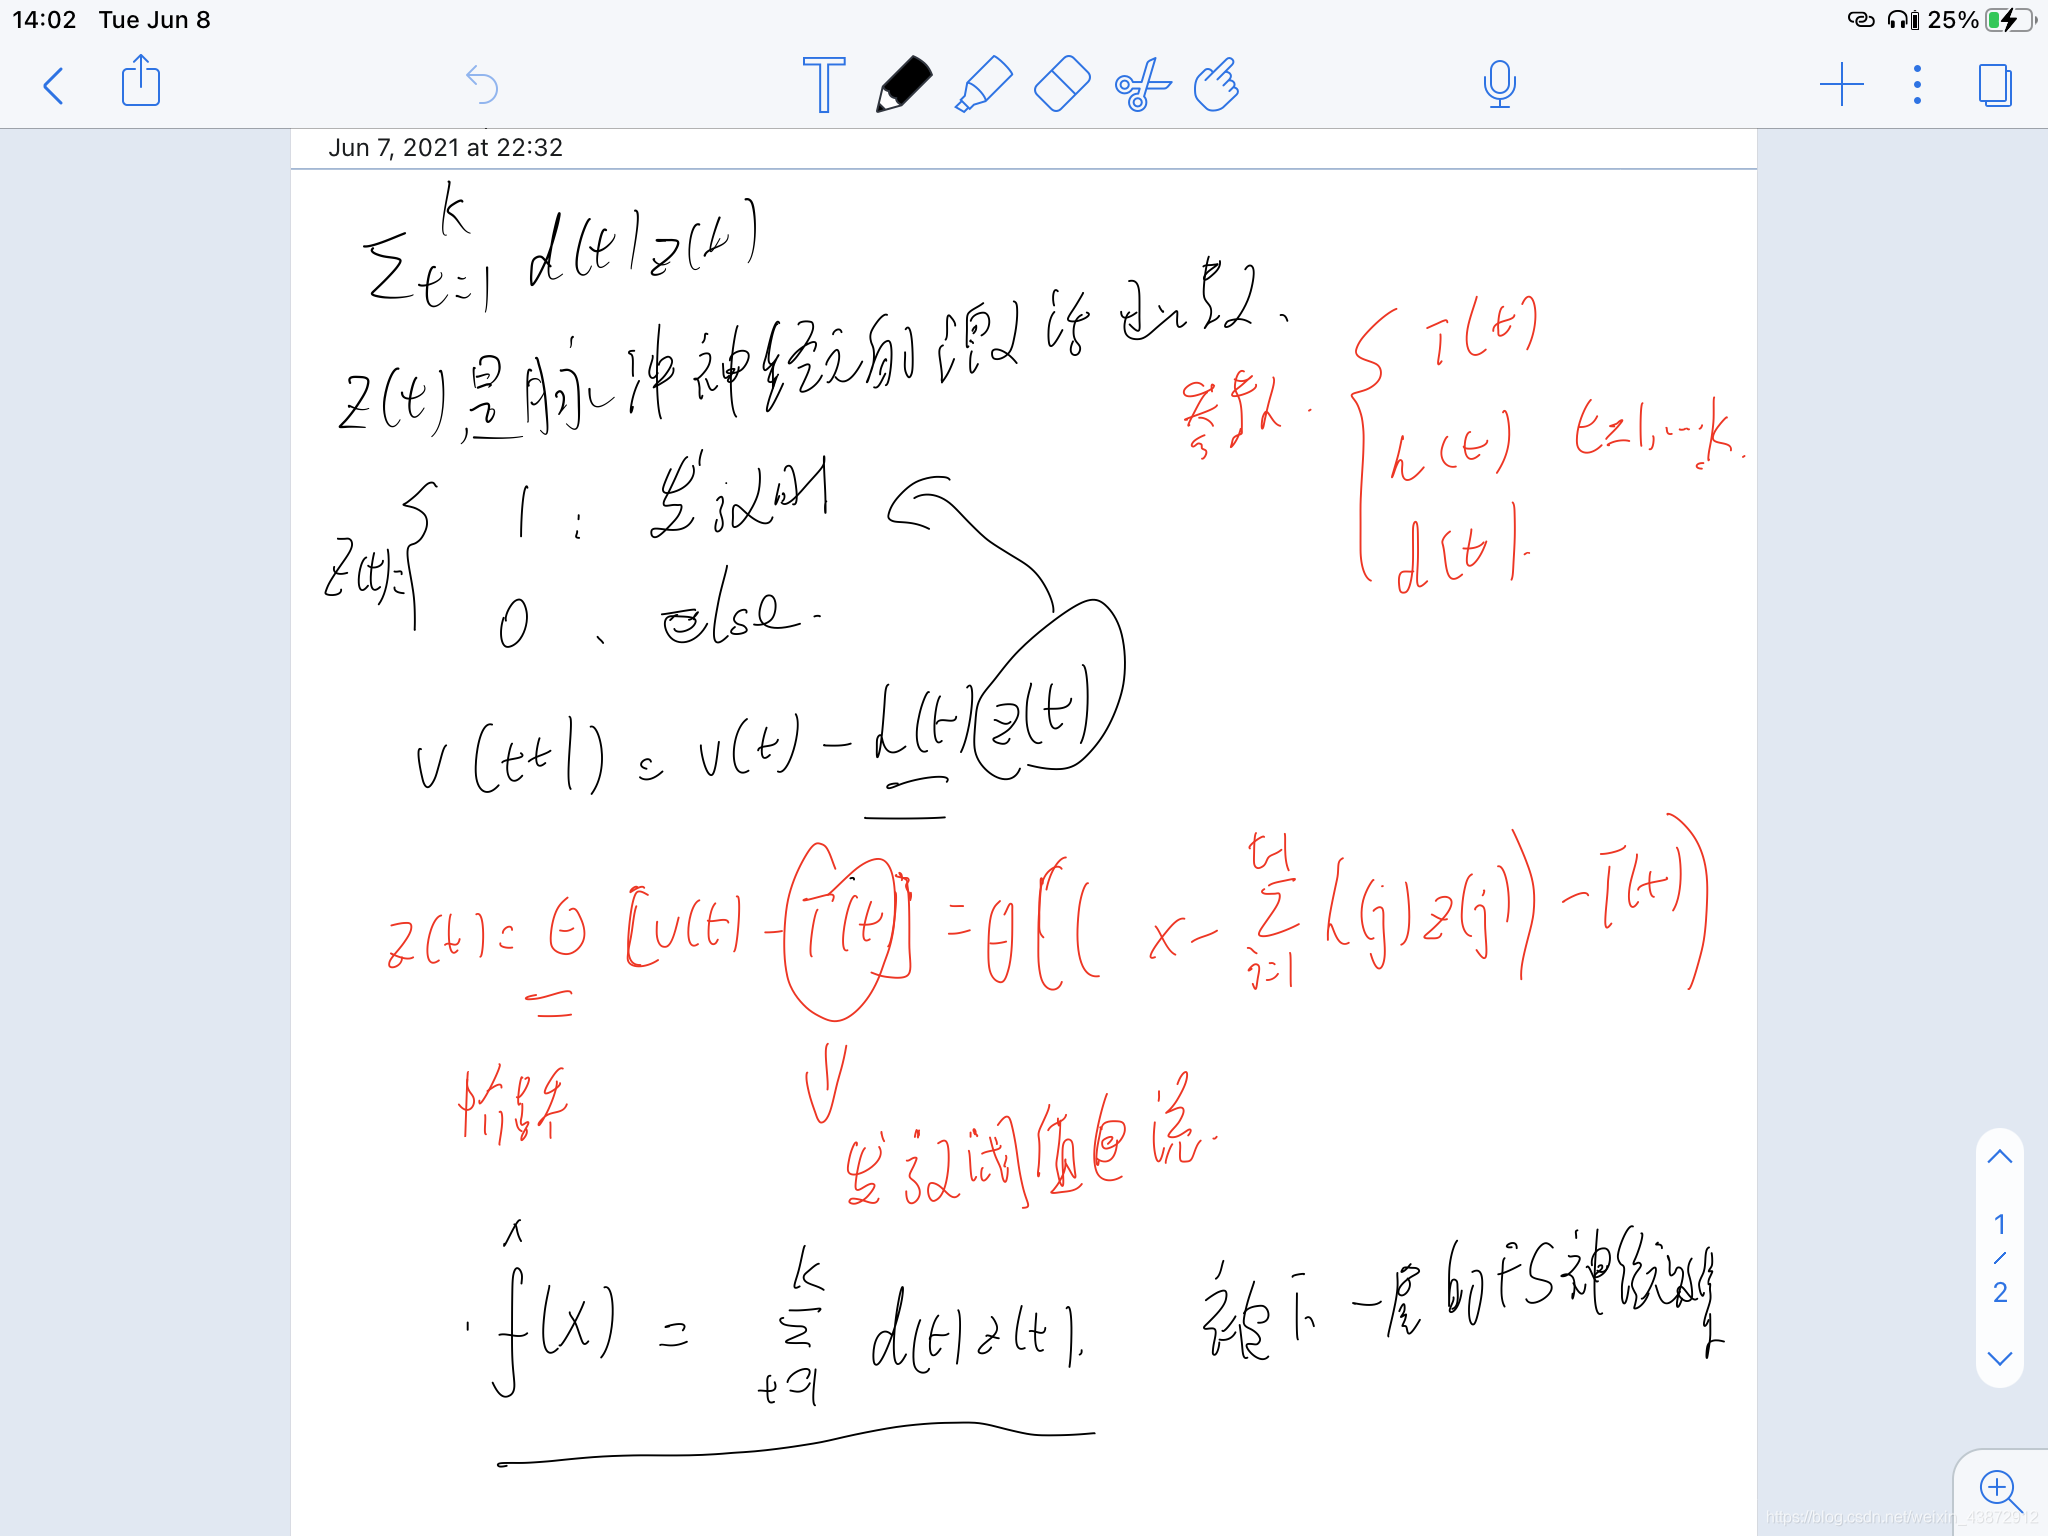 14:02 Tue Jun 8 25%
Jun 7, 2021 at 22:32
∑ₜ₌₁ᴷ d(t) z(t)
z(t)是脉冲神经元的激活函数.
参数. { T(t)
h(t) t=1,...K.
d(t).
z(t)= { 1 : 发放时
0 、 else.
v(t+1) = v(t) - h(t) z(t)
z(t) = Θ [v(t) - T(t)] = Θ[( x - ∑ⱼ₌₁ᵗ⁻¹ h(j) z(j)) - T(t))
阶跃
发放阈值电流.
f̂(x) = ∑ₜ₌₁ᴷ d(t) z(t). 被下一层的FS神经元
1
/
2
https://blog.csdn.net/weixin_43872912